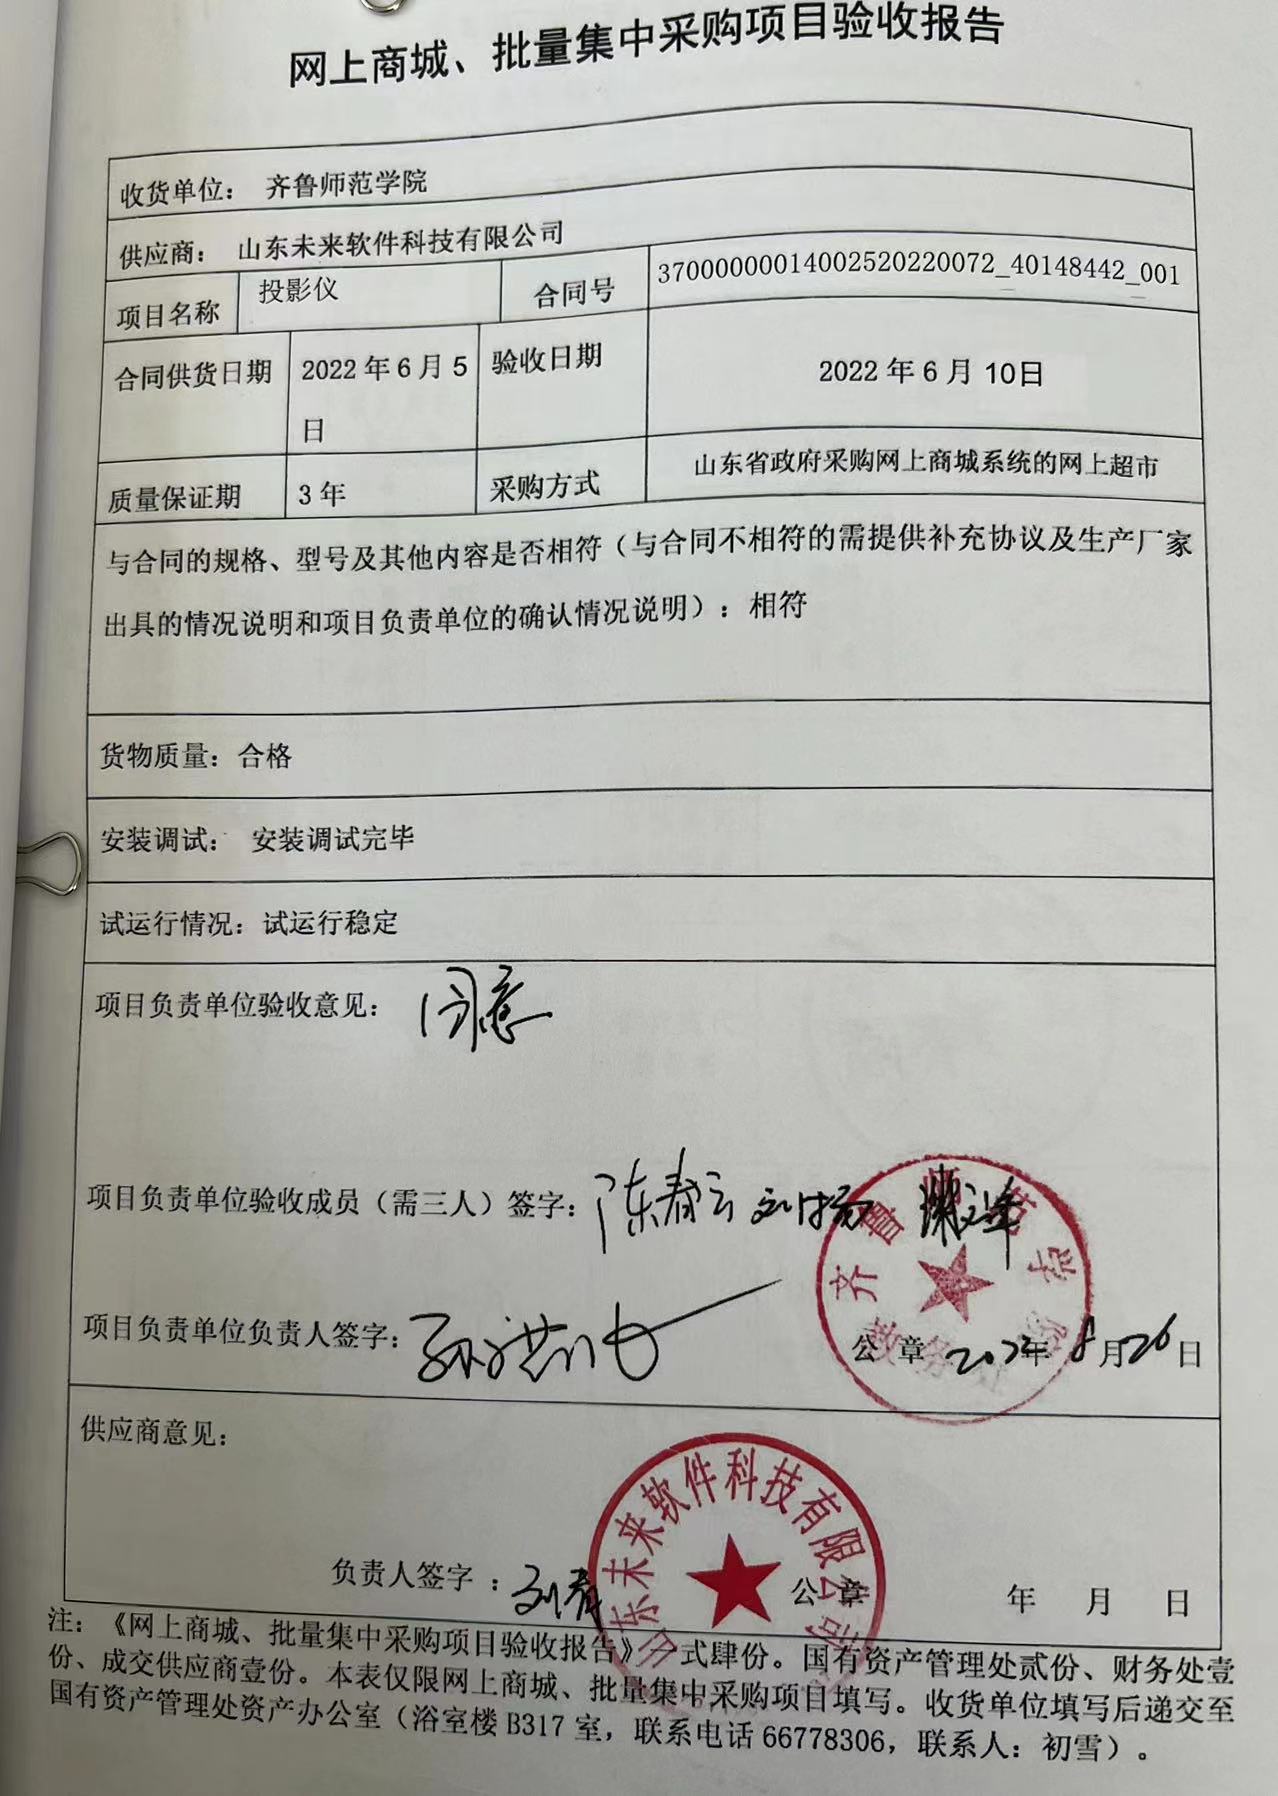 网上商城、批量集中采购项目验收报告
收货单位： 齐鲁师范学院
供应商： 山东未来软件科技有限公司
项目名称 投影仪 合同号 3700000014002520220072_40148442_001
合同供货日期 2022年6月5日 验收日期 2022年6月10日
质量保证期 3年 采购方式 山东省政府采购网上商城系统的网上超市
与合同的规格、型号及其他内容是否相符（与合同不相符的需提供补充协议及生产厂家
出具的情况说明和项目负责单位的确认情况说明）：相符
货物质量：合格
安装调试： 安装调试完毕
试运行情况：试运行稳定
项目负责单位验收意见： 同意
项目负责单位验收成员（需三人）签字：陈春云 刘扬
齐鲁师范学院
教务处
项目负责单位负责人签字：
公章 2022年8月26日
供应商意见：
山东未来软件科技有限公司
负责人签字：刘青 公章 年 月 日
注：《网上商城、批量集中采购项目验收报告》一式肆份。国有资产管理处贰份、财务处壹
份、成交供应商壹份。本表仅限网上商城、批量集中采购项目填写。收货单位填写后递交至
国有资产管理处资产办公室（浴室楼 B317 室，联系电话 66778306，联系人：初雪）。